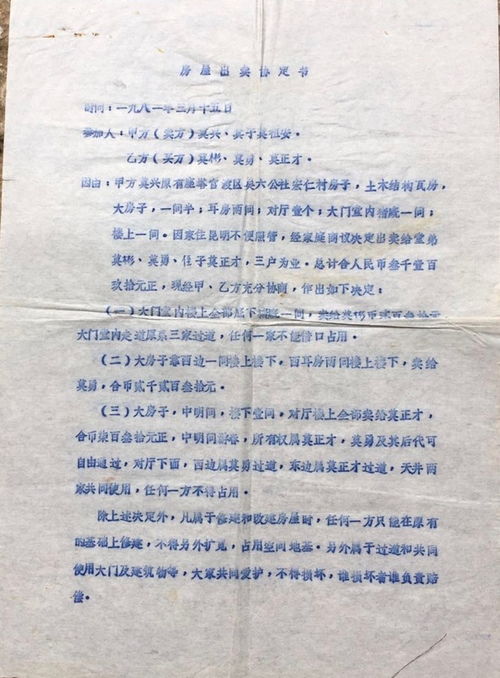 房屋出卖协定书
时间：一九八一年三月十五日
参加人：甲方（卖方）莫兴、莫于莫祖安。
乙方（买方）莫彬、莫勇、莫正才。
因由：甲方莫兴原有座落官渡区吴六公社宏仁村房子，土木结构瓦房，
大房子，一间半；耳房两间；对厅壹个；大门堂内楼底一间；
楼上一间。因家住昆明不便照管，经家庭商议决定出卖给堂弟
莫彬、莫勇、侄子莫正才，三户为业。总计合人民币叁千壹百
玖拾元正，现经甲、乙方充分协商，作出如下决定：
（一）大门堂内楼上全部底下一间，卖给莫彬币贰百叁拾元
大门堂内走道原系三家过道，任何一家不能借口占用。
（二）大房子靠西边一间楼上楼下，西耳房两间楼上楼下，卖给
莫勇，合币贰千贰百叁拾元。
（三）大房子，中明间，楼下壹间，对厅楼上全部卖给莫正才，
合币柒百叁拾元正，中明间，所有权属莫正才，莫勇及其后代可
自由通过，对厅下面，西边属莫勇过道，东边属莫正才过道，天井两
家共同使用，任何一方不得占用。
除上述决定外，凡属于修建和改建房屋时，任何一方只能在原有
的基础上修建，不得另外扩宽，占用空间地基。另外属于过道和共同
使用大门及建筑物等，大家共同爱护，不得损坏，谁损坏者谁负责赔
偿。